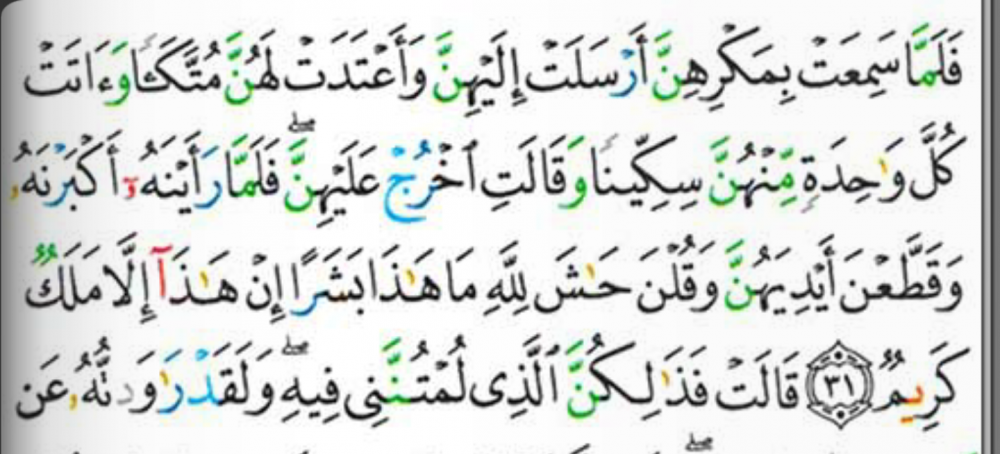 فَلَمَّا سَمِعَتْ بِمَكْرِهِنَّ أَرْسَلَتْ إِلَيْهِنَّ وَأَعْتَدَتْ لَهُنَّ مُتَّكَـًٔا وَءَاتَتْ
كُلَّ وَٰحِدَةٍ مِّنْهُنَّ سِكِّينًا وَقَالَتِ ٱخْرُجْ عَلَيْهِنَّ ۖ فَلَمَّا رَأَيْنَهُۥٓ أَكْبَرْنَهُۥ
وَقَطَّعْنَ أَيْدِيَهُنَّ وَقُلْنَ حَـٰشَ لِلَّهِ مَا هَـٰذَا بَشَرًا إِنْ هَـٰذَآ إِلَّا مَلَكٌ
كَرِيمٌ ٣١ قَالَتْ فَذَٰلِكُنَّ ٱلَّذِى لُمْتُنَّنِى فِيهِ ۖ وَلَقَدْ رَٰوَدتُّهُۥ عَن